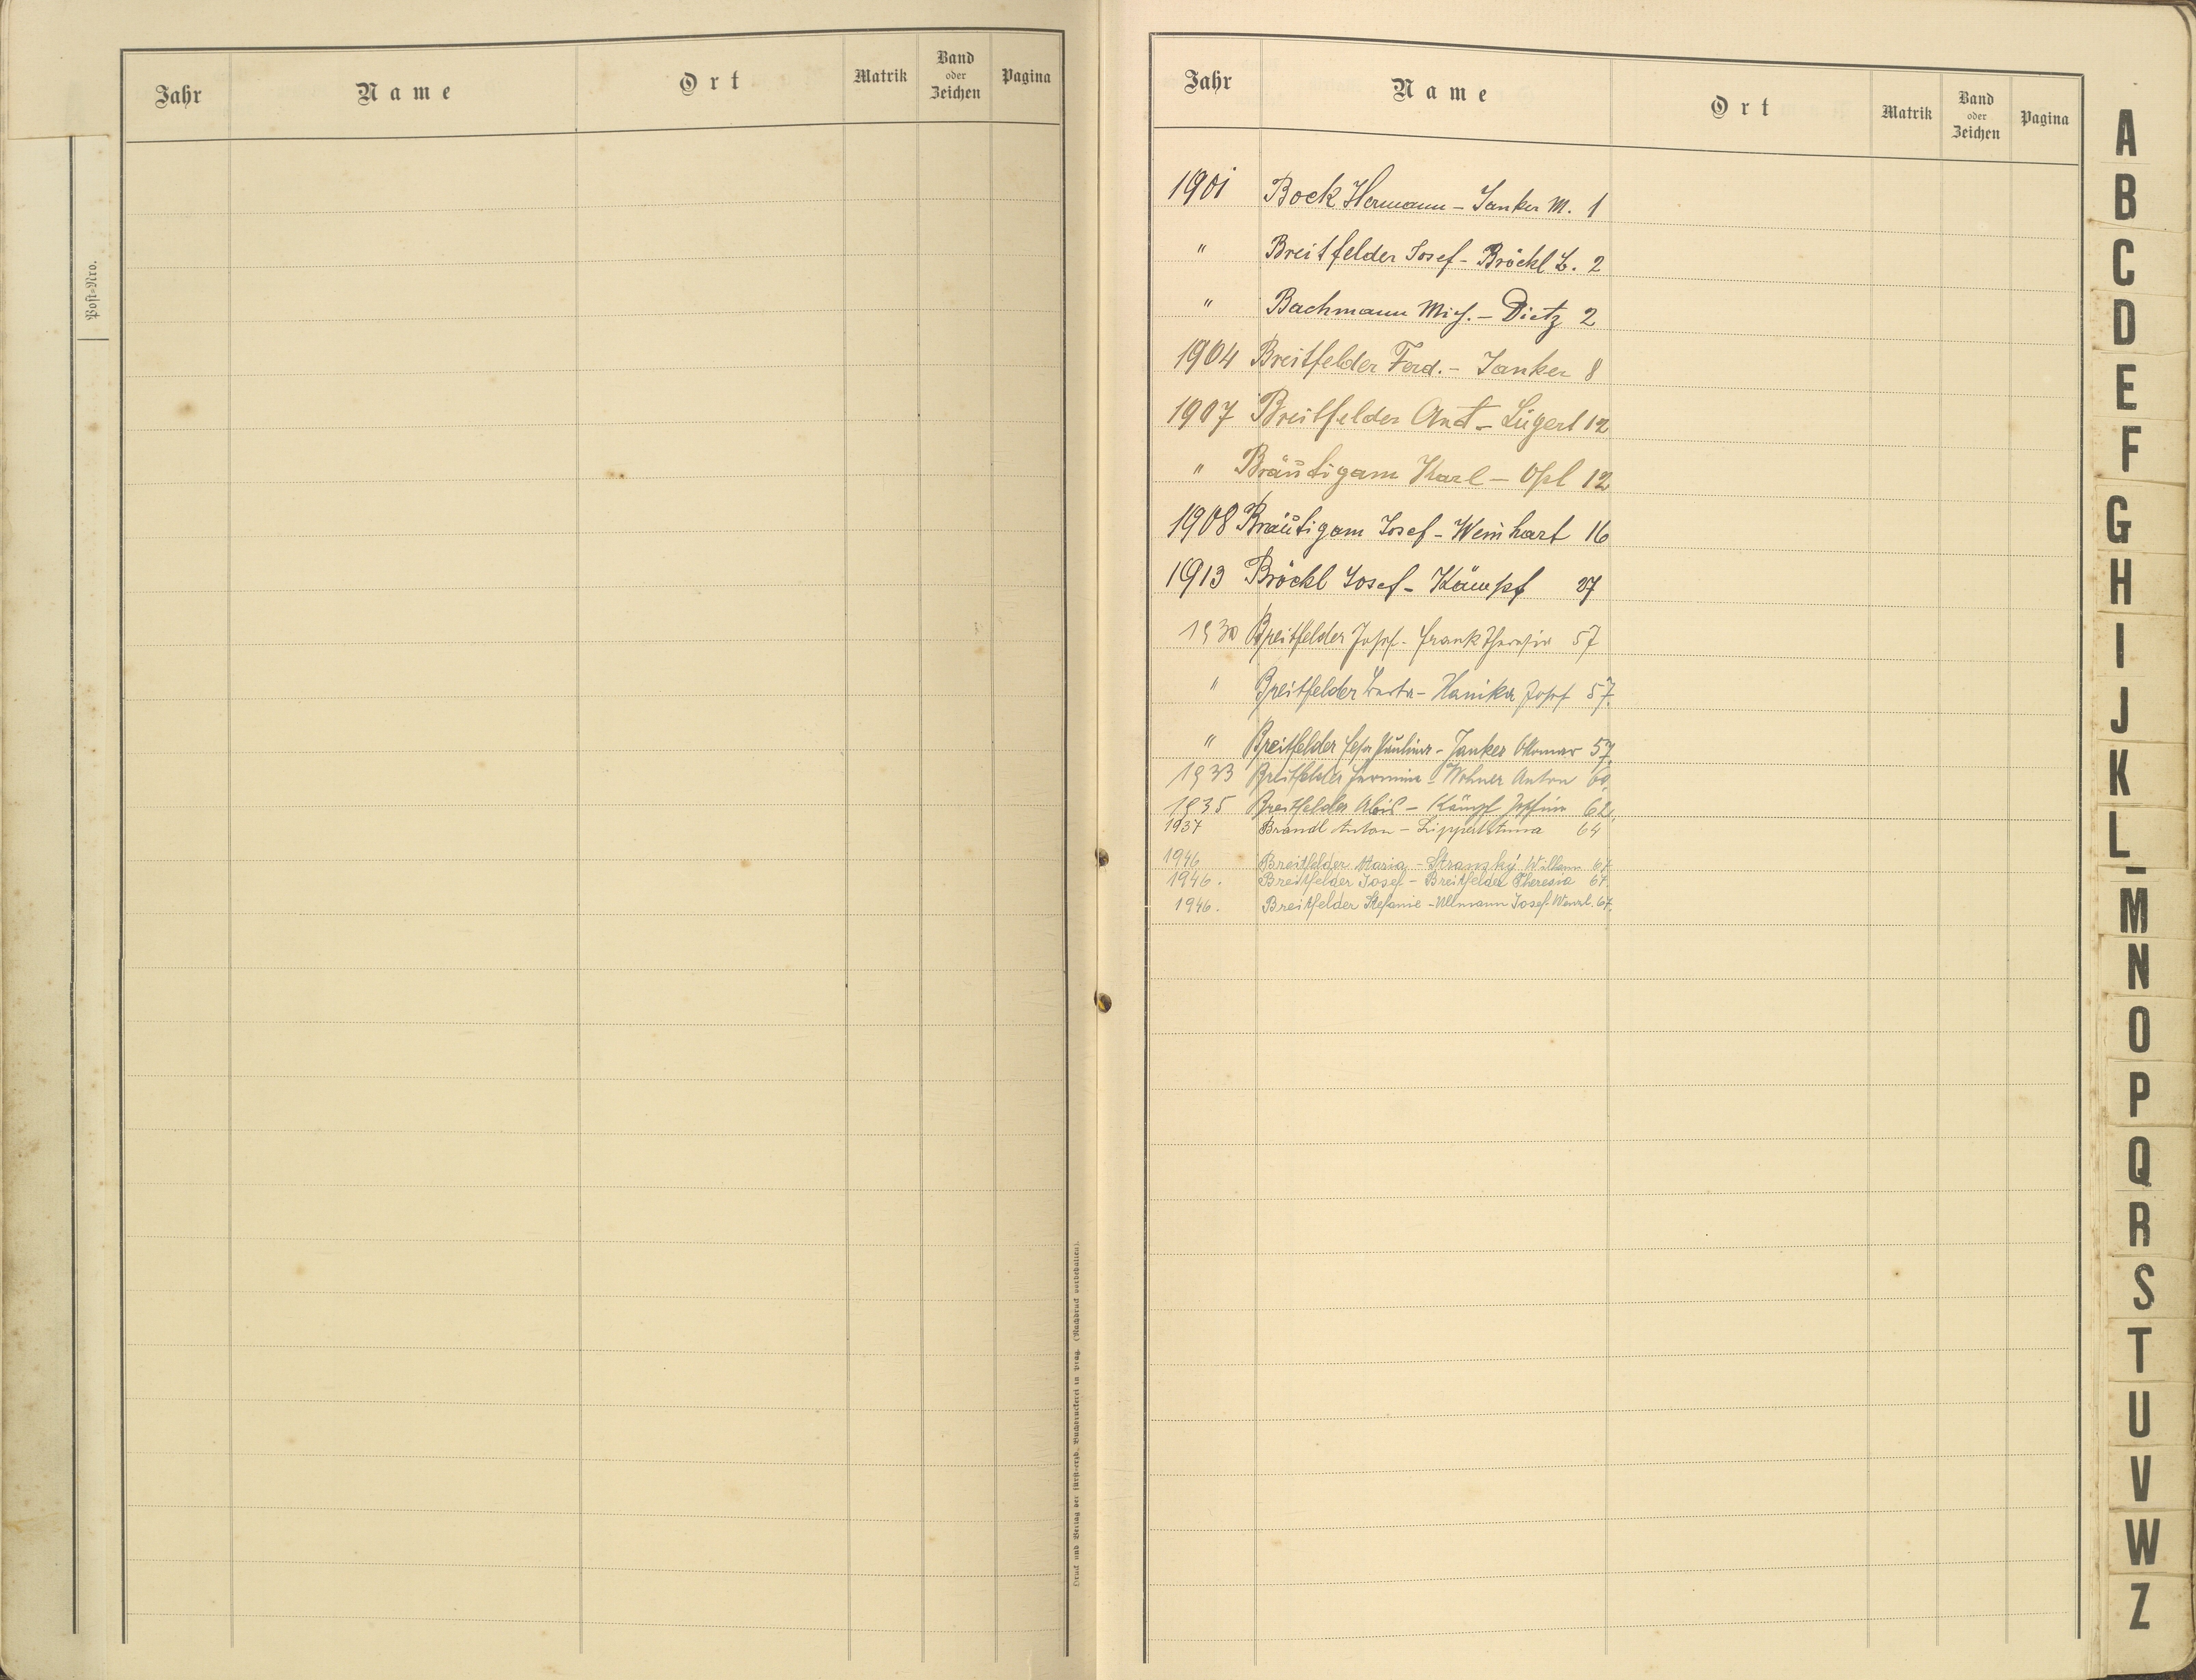 Jahr Name Ort Matrik Band oder Zeichen Pagina
Post-Nro.
Druck und Verlag der fürsterzb. Buchdruckerei in Prag. (Nachdruck vorbehalten).
Jahr Name Ort Matrik Band oder Zeichen Pagina
1901 Bock Hermann – Janker M. 1
" Breitfelder Josef – Bröckl B. 2
" Bachmann Mich. – Dietz 2
1904 Breitfelder Ferd. – Janker 8
1907 Breitfelder Ant – Lugert 12
" Bräutigam Karl – Opl 12
1908 Bräutigam Josef – Weinhart 16
1913 Bröckl Josef – Kämpf 27
1930 Breitfelder Josef – Frank Theresia 57
" Breitfelder Berta – Hanika Josef 57.
" Breitfelder Pauline – Janker Ottomar 57.
1933 Breitfelder Hermine – Wohner Anton 60.
1935 Breitfelder Alois – Kämpf Josefine 62.
1937 Brandl Anton – Lippert Anna 64
1946 Breitfelder Maria – Stranzky 67.
1946. Breitfelder Josef – Breitfelder Theresia 67.
1946. Breitfelder Stefanie – Ullmann Josef Wenzl. 67.
A
B
C
D
E
F
G
H
I
J
K
L
M
N
O
P
Q
R
S
T
U
V
W
Z